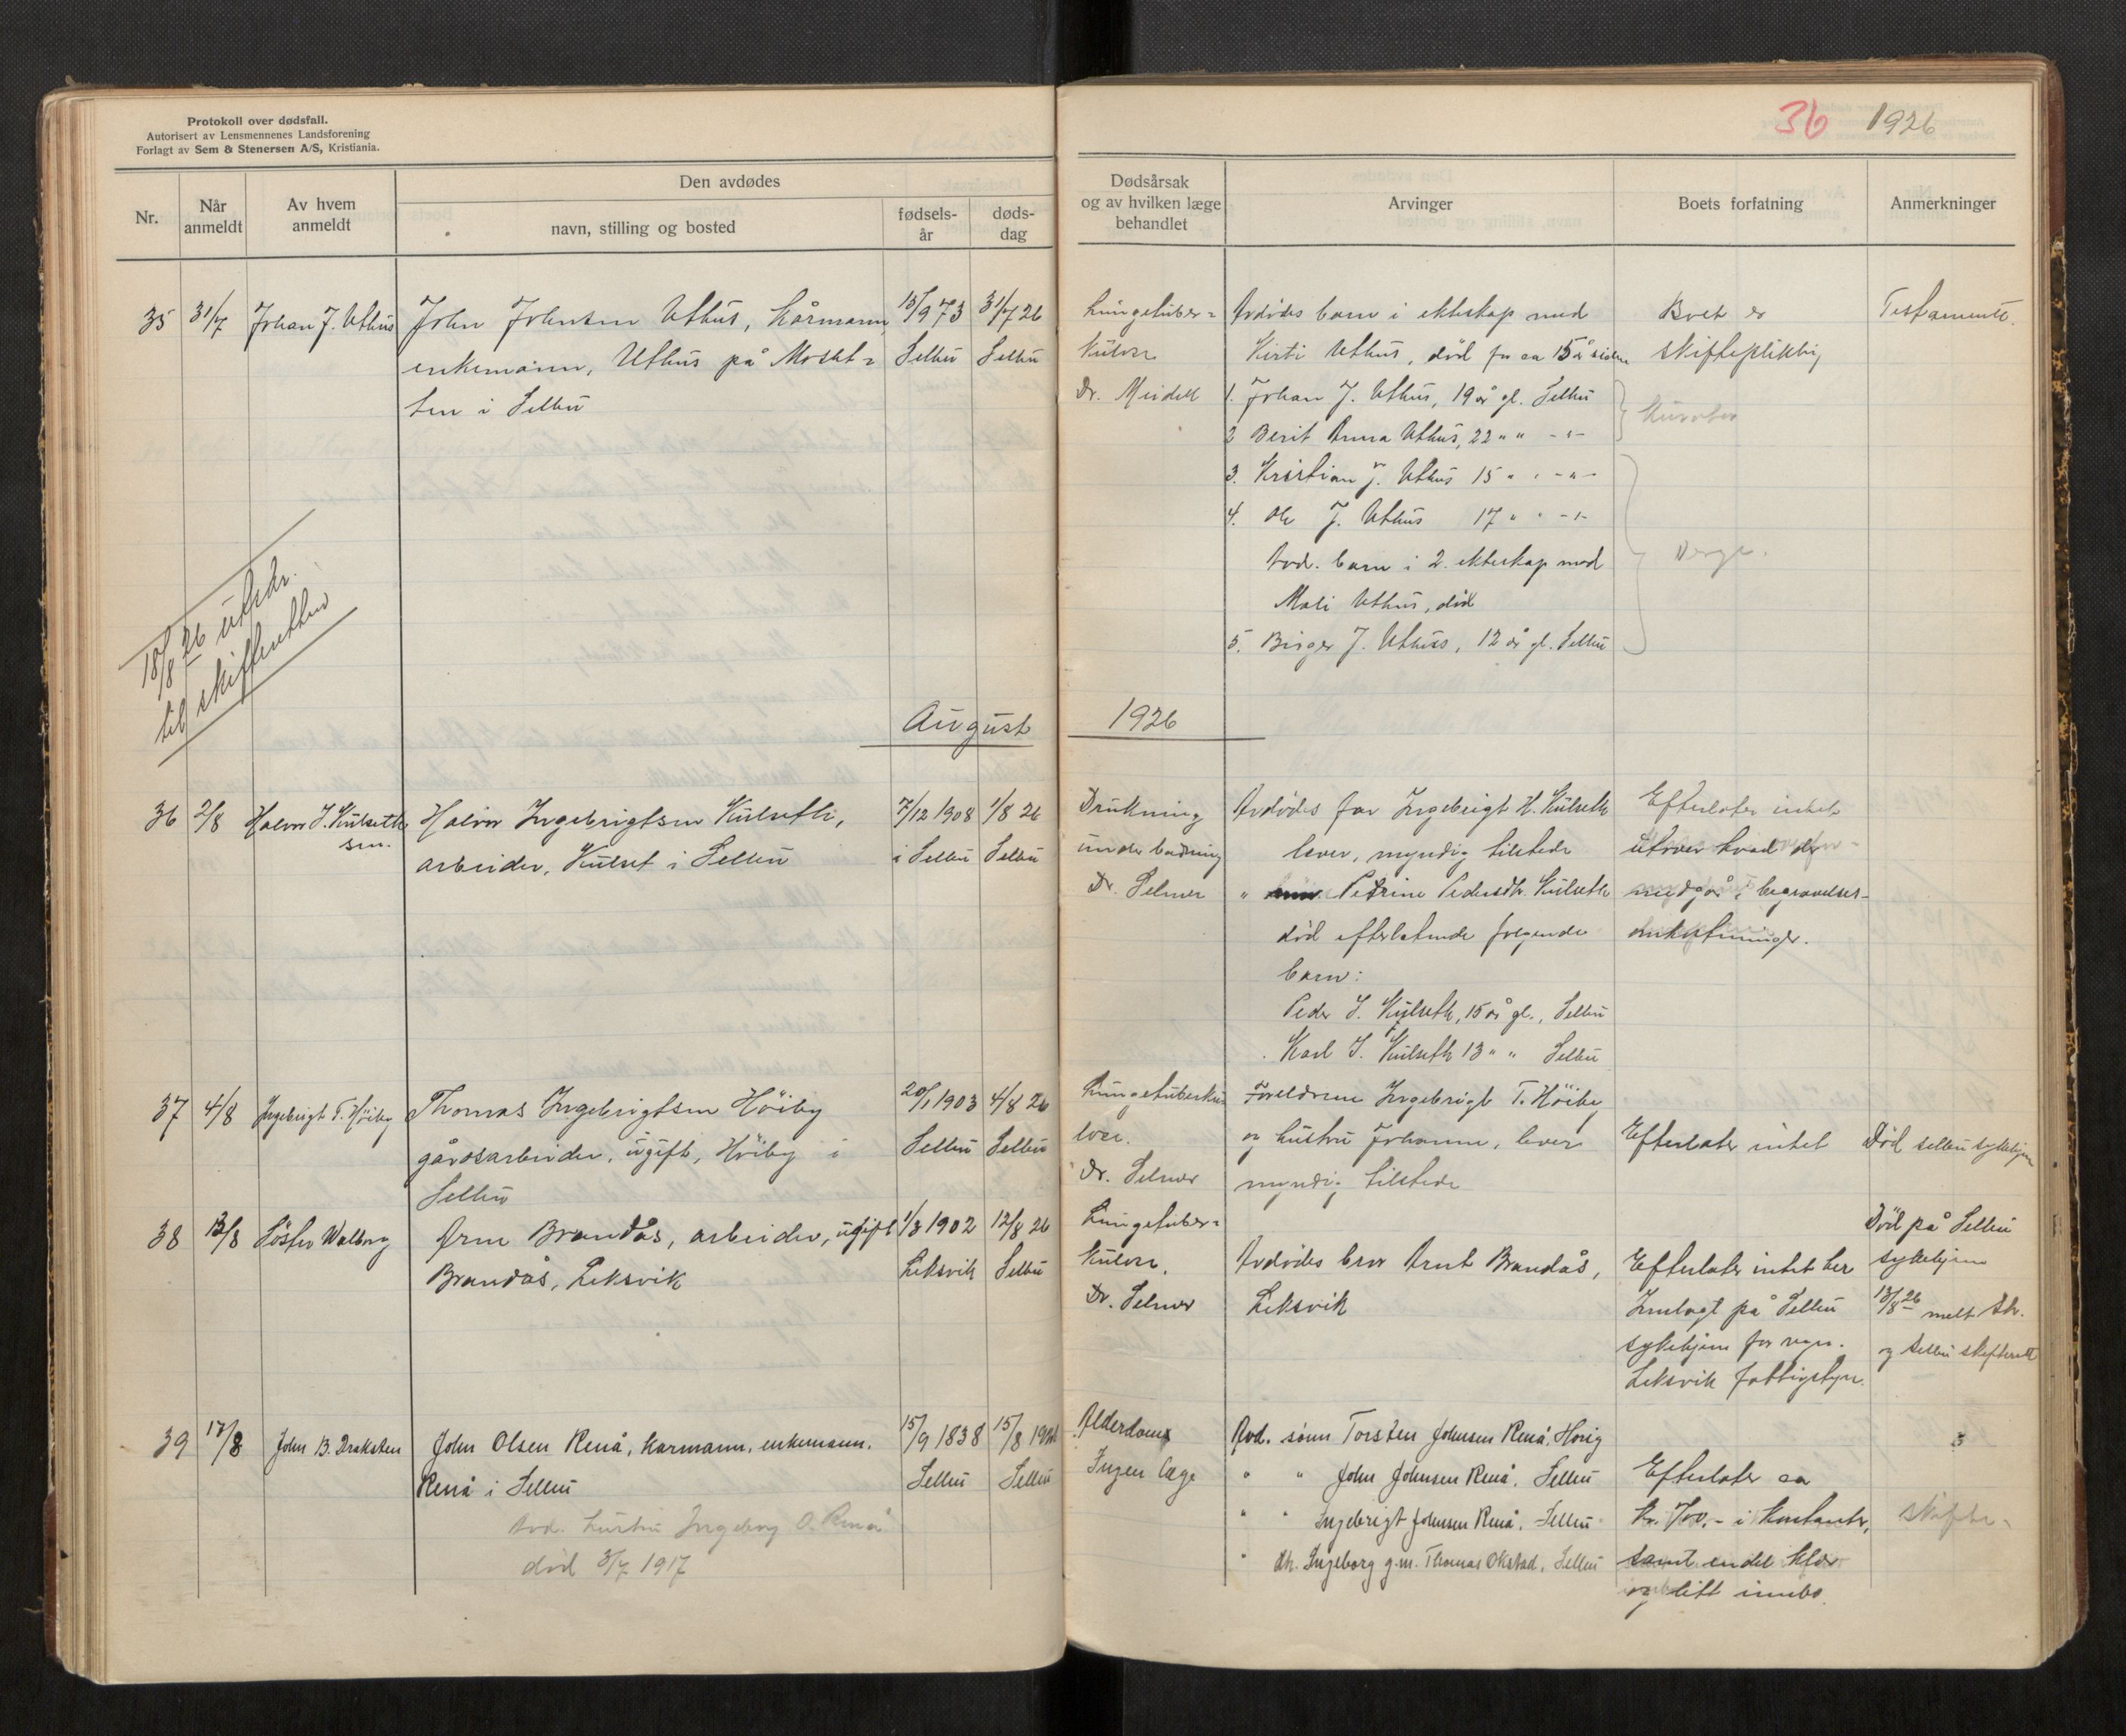 Protokoll over dødsfall.
Autorisert av Lensmennenes Landsforening
Forlagt av Sem & Stenersen A/S, Kristiania.
36 1926
Nr.
Når anmeldt
Av hvem anmeldt
Den avdødes
navn, stilling og bosted
fødsels-år
døds-dag
Dødsårsak
og av hvilken læge
behandlet
Arvinger
Boets forfatning
Anmerkninger
35 31/7 Johan J. Uthus
John Johnsen Uthus, kårmann
enkemann, Uthus på Moslet-
ten i Selbu
15/9 73
Selbu
31/7 26
Selbu
Lungetuber-
kulose
Dr. Meidell
Avdødes barn i ekteskap med
Kirti Uthus, død for ca 15 år siden
1. Johan J. Uthus, 19 år gl. Selbu
2 Berit Anna Uthus, 22 " " - " -
3. Kristian J. Uthus 15 " " - " -
4. Ole J. Uthus 17 " " - " -
Avd. barn i 2. ekteskap med
Mali Uthus, død
5. Birger J. Uthus, 12 år gl. Selbu
Boet er
skiftepliktig
Kurator
Verge.
Testamente.
18/8 26 utskr.
til skifteretten
August 1926
36 2/8 Halvor J. Kulseth
sen.
Halvor Ingebrigtsen Kulseth,
arbeider, Kulset i Selbu
7/12 1908
i Selbu
1/8 26
Selbu
Drukning
under badning
Dr. Selmer
Avdødes far Ingebrigt H. Kulseth
lever, myndig tilstede
" Petrine Pedersdtr. Kulseth
død efterlatende følgende
barn:
Peder I. Kulseth, 15 år gl., Selbu
Karl I. Kulseth 13 " " Selbu
Efterlater intet
utover hvad der
medgår i begravelses-
omkostninger.
37 4/8 Ingebrigt T. Höiby
Thomas Ingebrigtsen Höiby
gårdsarbeider, ugift, Höiby i
Selbu
20/1 1903
Selbu
4/8 26
Selbu
Lungetuberku
lose.
Dr. Selmer
Foreldrene Ingebrigt T. Höiby
og hustru Johanna, lever
myndig tilstede
Efterlater intet
Död Selbu sykehjem
38 13/8 Söster Walborg
Arne Brandås, arbeider, ugift
Brandås, Leksvik
1/3 1902
Leksvik
12/8 26
Selbu
Lungetuber-
kulose.
Dr. Selmer
Avdødes bror Arnt Brandås,
Leksvik
Efterlater intet her
Innlagt på Selbu
sykehjem for regn.
Leksvik fattigstyre.
Död på Selbu
sykehjem
13/8 26 melt Str.
og Selbu skifterett
39 17/8 John B. Draksten
John Olsen Renå, karmann, enkemann.
Renå i Selbu
avd. hustru Ingeborg O. Renå
död 3/7 1917
15/9 1838
Selbu
15/8 1926
Selbu
Alderdom
Ingen læge
Avd. sønn Torsten Johnsen Renå, Horig
" " John Johnsen Renå, Selbu
" " Ingebrigt Johnsen Renå, Selbu
" dtr. Ingeborg g.m. Thomas Okstad, Selbu
Efterlater ca
kr. 700,- i kontanter,
samt endel klær
og litt innbo.
skifte-